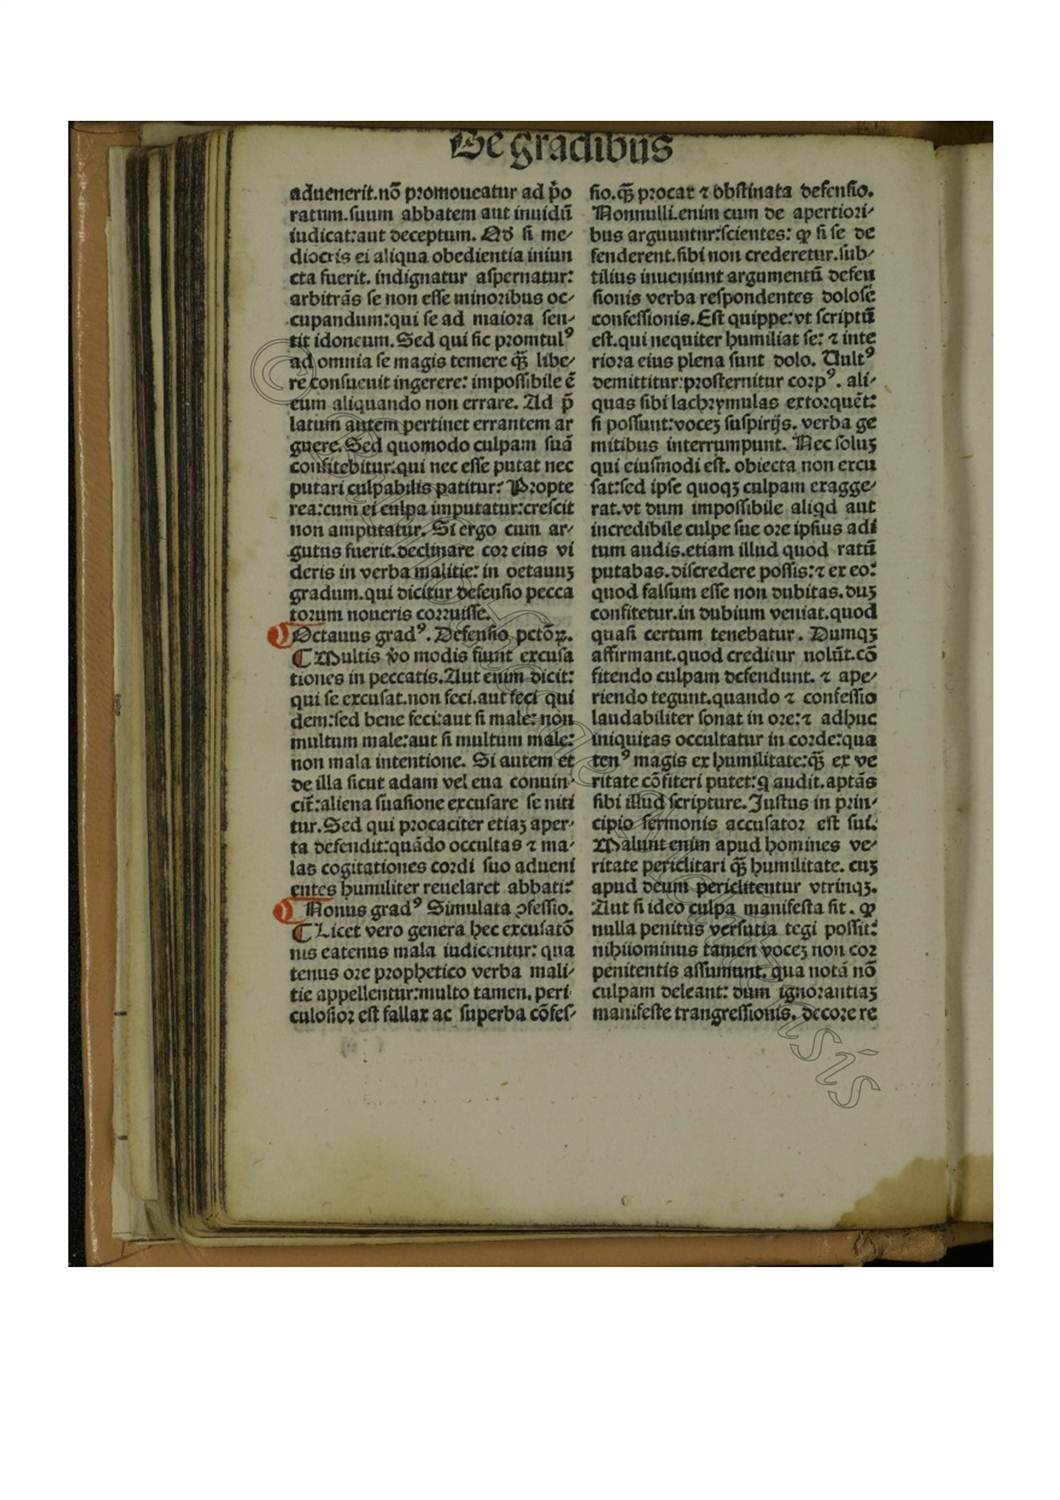 De gradibus
aduenerit.nō promoueatur ad p̄o
ratum.suum abbatem aut inuidū
iudicat:aut deceptum. Qđ si me⸗
diocris ei aliqua obedientia iniun
cta fuerit. indignatur aspernatur:
arbitrās se non esse minoribus oc⸗
cupandum:qui se ad maiora sen⸗
tit idoneum. Sed qui sic promtulꝰ
ad omnia se magis temere qꝫ̄ libe⸗
re consueuit ingerere: impossibile ē
eum aliquando non errare. Ad p̄
latum autem pertinet errantem ar
guere. Sed quomodo culpam suā
confitebitur:qui nec esse putat nec
putari culpabilis patitur? Propte
rea:cum ei culpa imputatur:crescit
non amputatur. Si ergo cum ar⸗
gutus fuerit.declinare cor eius vi
deris in verba malitie: in octauuꝫ
gradum.qui dicitur defensio pecca
torum noueris corruisse.
Octauus gradꝰ. Defensio pctōꝝ.
¶ Multis v̄o modis fiunt excusa
tiones in peccatis. Aut enim dicit:
qui se excusat.non feci.aut feci qui
dem:sed bene feci:aut si male: non
multum male:aut si multum male:
non mala intentione. Si autem et
de illa sicut adam vel eua conuin⸗
cit̄:aliena suasione excusare se niti
tur. Sed qui procaciter etiaꝫ aper⸗
ta defendit:quādo occultas ⁊ ma⸗
las cogitationes cordi suo adueni
entes humiliter reuelaret abbati?
Nonus gradꝰ Simulata ꝯfessio.
¶ Licet vero genera hec excusatō
nis eatenus mala iudicentur: qua
tenus ore prophetico verba mali⸗
tie appellentur:multo tamen. peri
culosior est fallax ac superba cōfes⸗
sio.qꝫ̄ procax ⁊ obstinata defensio.
Nonnulli.enim cum de apertiori⸗
bus arguuntur:scientes: ꝙ si se de
fenderent.sibi non crederetur.sub⸗
tilius inueniunt argumentū defen
sionis verba respondentes dolose
confessionis. Est quippe:vt scriptū
est.qui nequiter humiliat se: ⁊ inte
riora eius plena sunt dolo. Vultꝰ
demittitur:prosternitur corpꝰ. ali⸗
quas sibi lachrymulas extorquēt:
si possunt:voceꝫ suspirijs. verba ge
mitibus interrumpunt. Nec soluꝫ
qui eiusmodi est. obiecta non excu
sat:sed ipse quoqꝫ culpam exagge⸗
rat.vt dum impossibile aliqd aut
incredibile culpe sue ore ipsius adi
tum audis.etiam illud quod ratū
putabas.discredere possis:⁊ ex eo:
quod falsum esse non dubitas.duꝫ
confitetur.in dubium veniat.quod
quasi certum tenebatur. Dumqꝫ
affirmant.quod creditur nolūt.cō
fitendo culpam defendunt. ⁊ ape⸗
riendo tegunt.quando ⁊ confessio
laudabiliter sonat in ore:⁊ adhuc
iniquitas occultatur in corde:qua
tenꝰ magis ex humilitate:qꝫ̄ ex ve
ritate cōfiteri putet:q audit.aptās
sibi illud scripture. Justus in prin⸗
cipio sermonis accusator est sui.
Malunt enim apud homines ve⸗
ritate periclitari qꝫ̄ humilitate. cuꝫ
apud deum periclitentur vtrinqꝫ.
Aut si ideo culpa manifesta sit. ꝙ
nulla penitus versutia tegi possit:
nihilominus tamen voceꝫ non cor
penitentis assumunt. qua notā nō
culpam deleant: dum ignorantiaꝫ
manifeste trangressionis. decore re